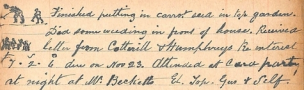 Finished putting in carrot seed in top garden.
Did some weeding in front of house. Received
letter from Cottrill & Humphreys Re interest
7. 2. 6 due on Nov 23. Attended at Card party
at night at Mr. Becketts E, Top, Gus & Self.